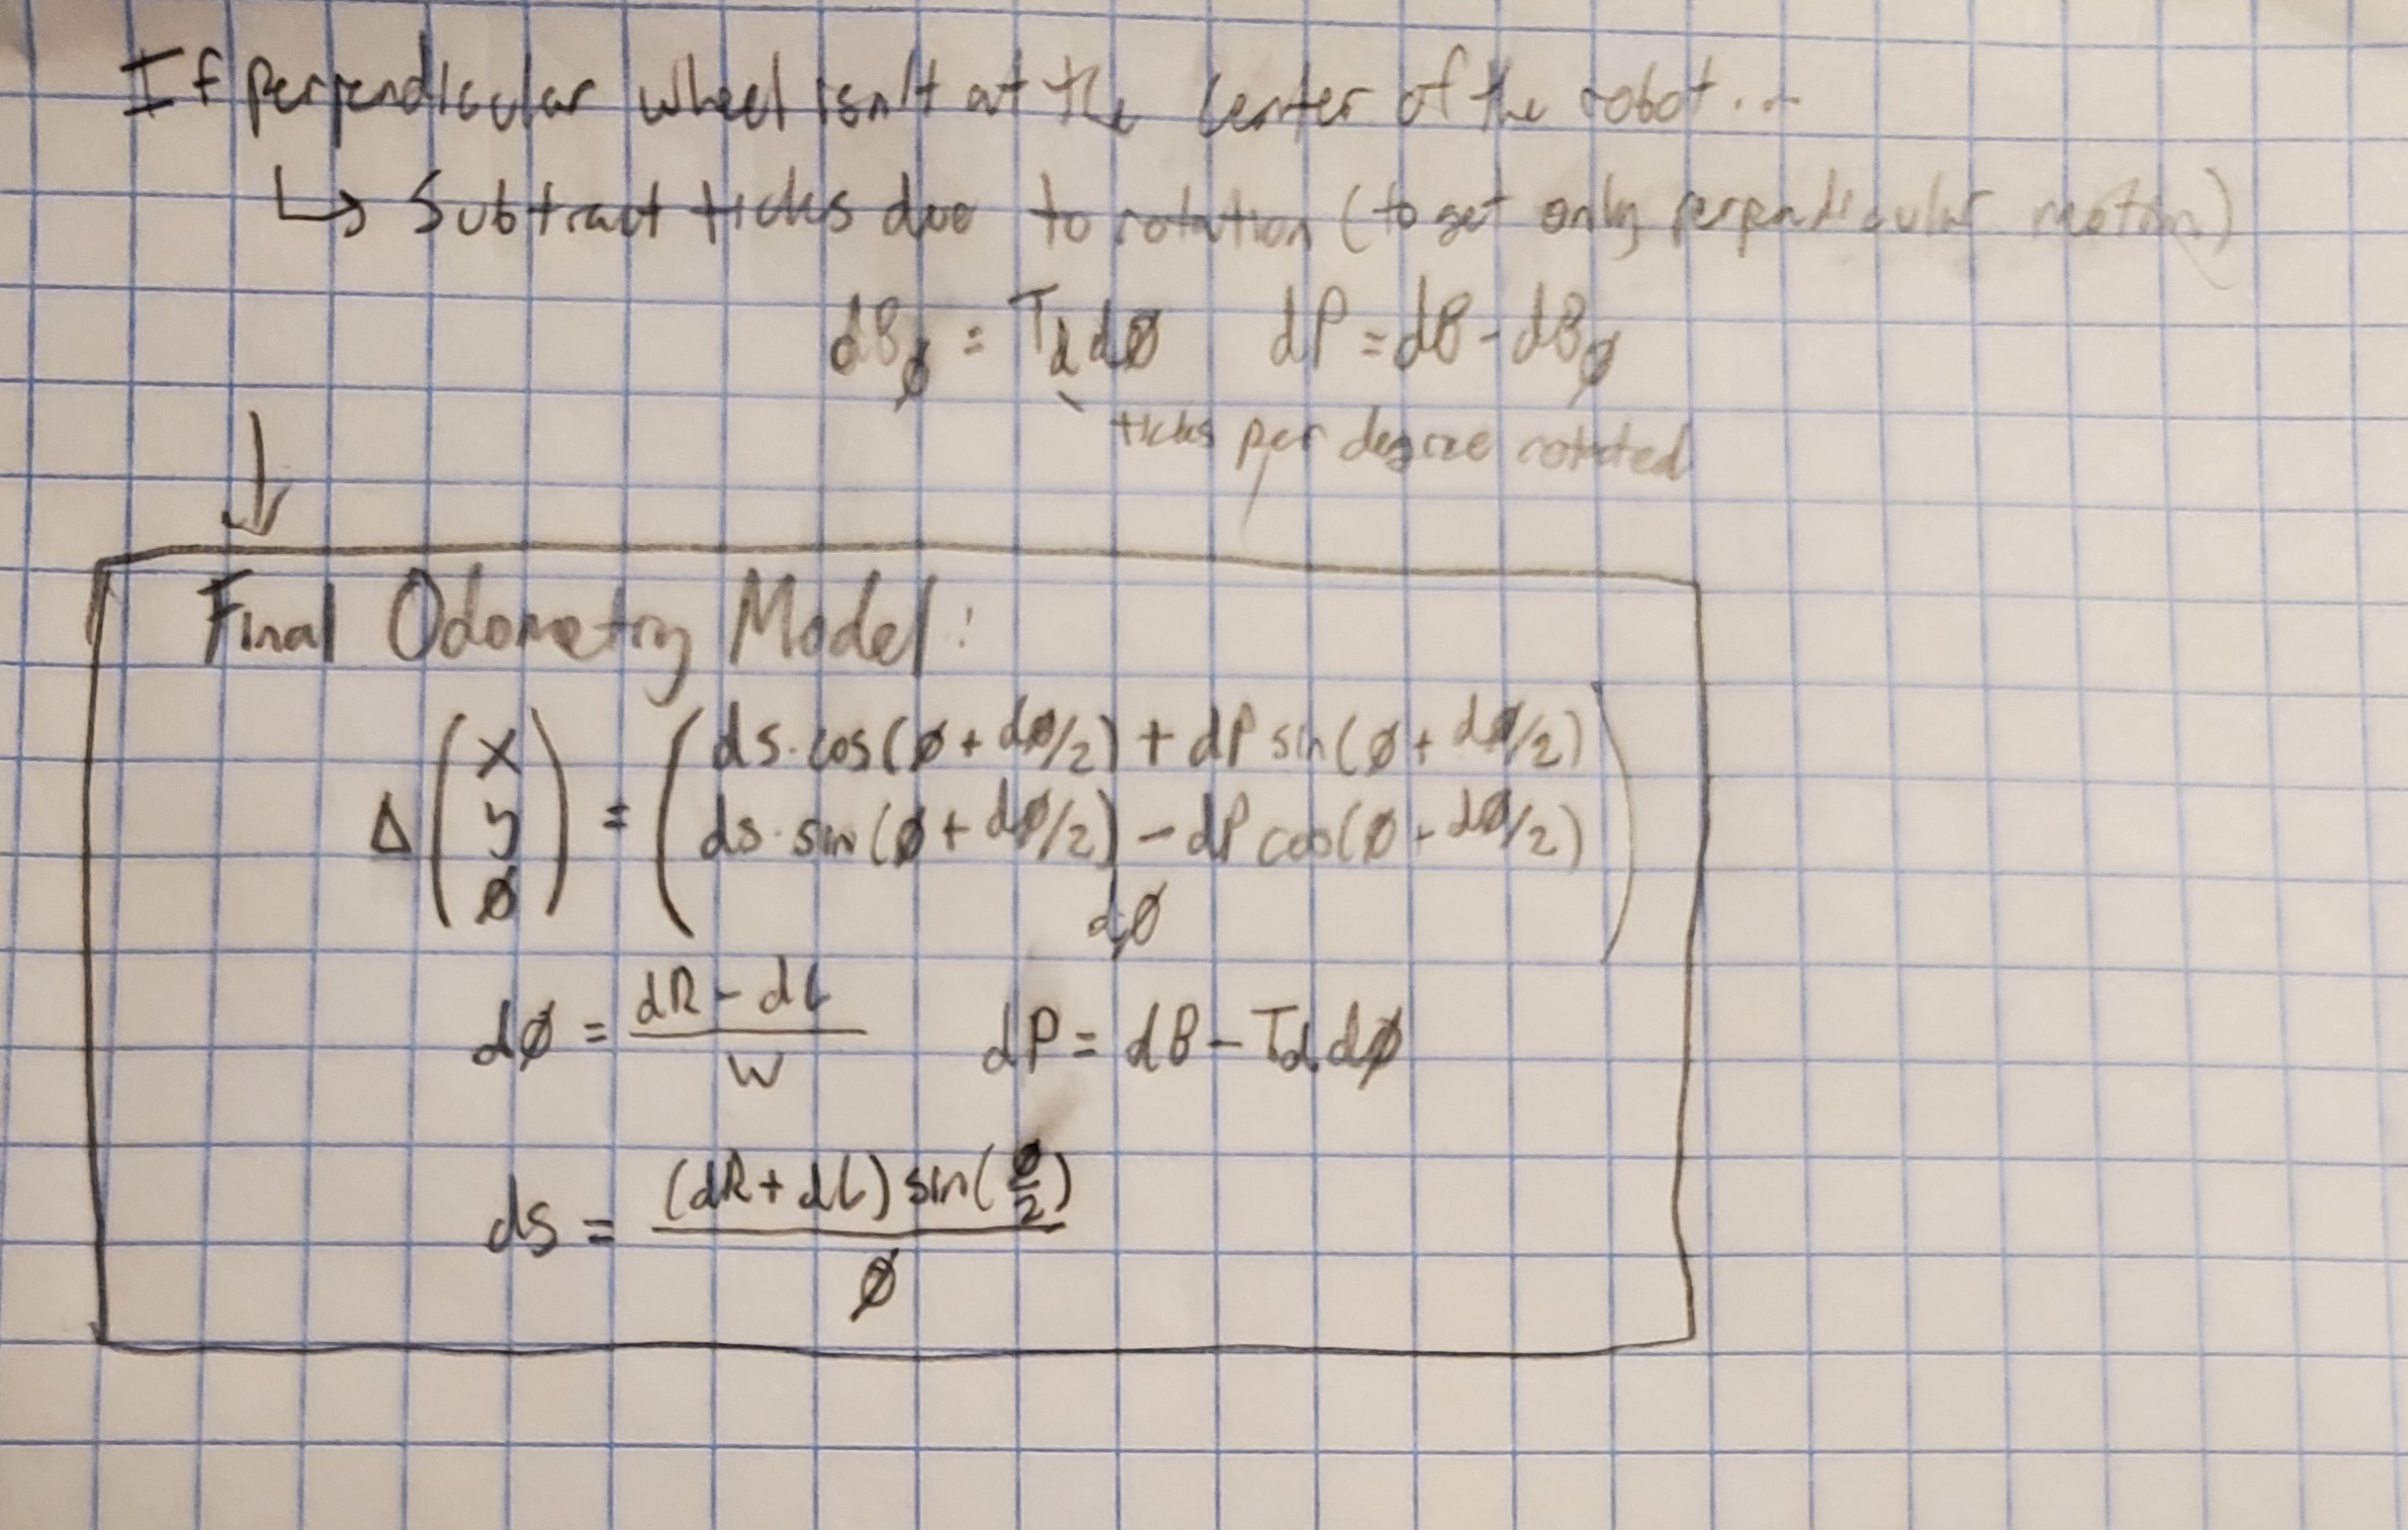 If perpendicular wheel isn't at the center of the robot...
↳ Subtract ticks due to rotation (to get only perpendicular motion)
dB_ø = T_d dø    dP = dB - dB_ø
ticks per degree rotated
Final Odometry Model:
Δ(x y ø) = (ds·cos(ø + dø/2) + dP sin(ø + dø/2)
ds·sin(ø + dø/2) - dP cos(ø + dø/2)
dø)
dø = (dR - dL)/W    dP = dB - T_d dø
ds = (dR + dL) sin(ø/2)/ø